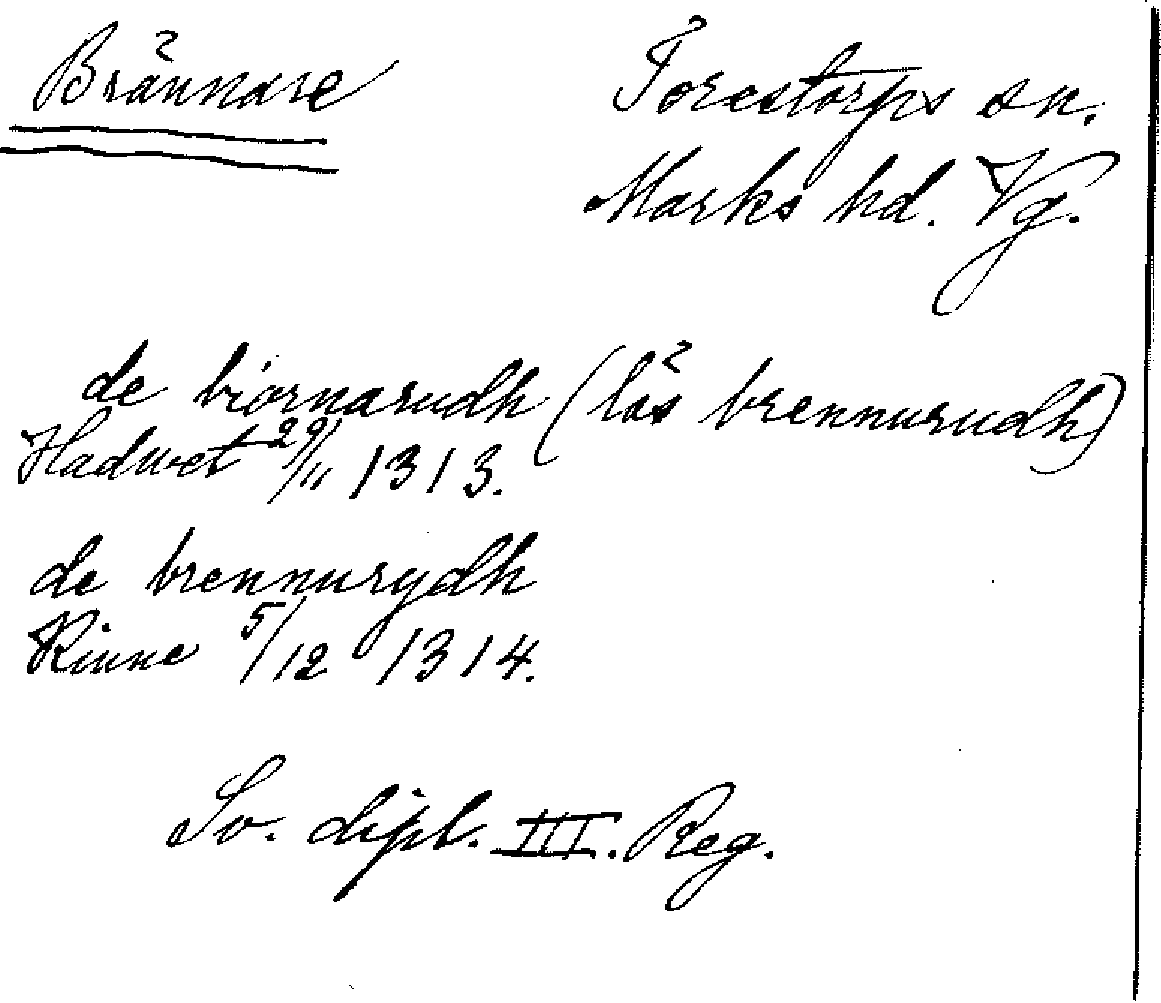 Brännare
Torestorps sn.
Marks hd. Vg.
de biornarudh (läs brennurudh)
Hadwet 29/11 1313.
de brennurydh
Kinne 5/12 1314.
Sv. dipl. III. Reg.